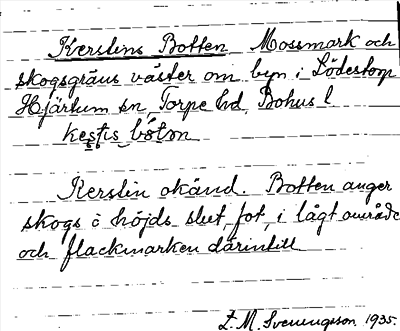 Kerstins Botten Mossmark och
skogsgräns väster om byn i Södestorp
Hjärtum sn Torpe hd. Bohus l
kes̱tis bóton
Kerstin okänd. Botten anger
skogs o höjds slut, fot, i lågt område
och flackmarken därintill
E. M. Svenungsson 1935.